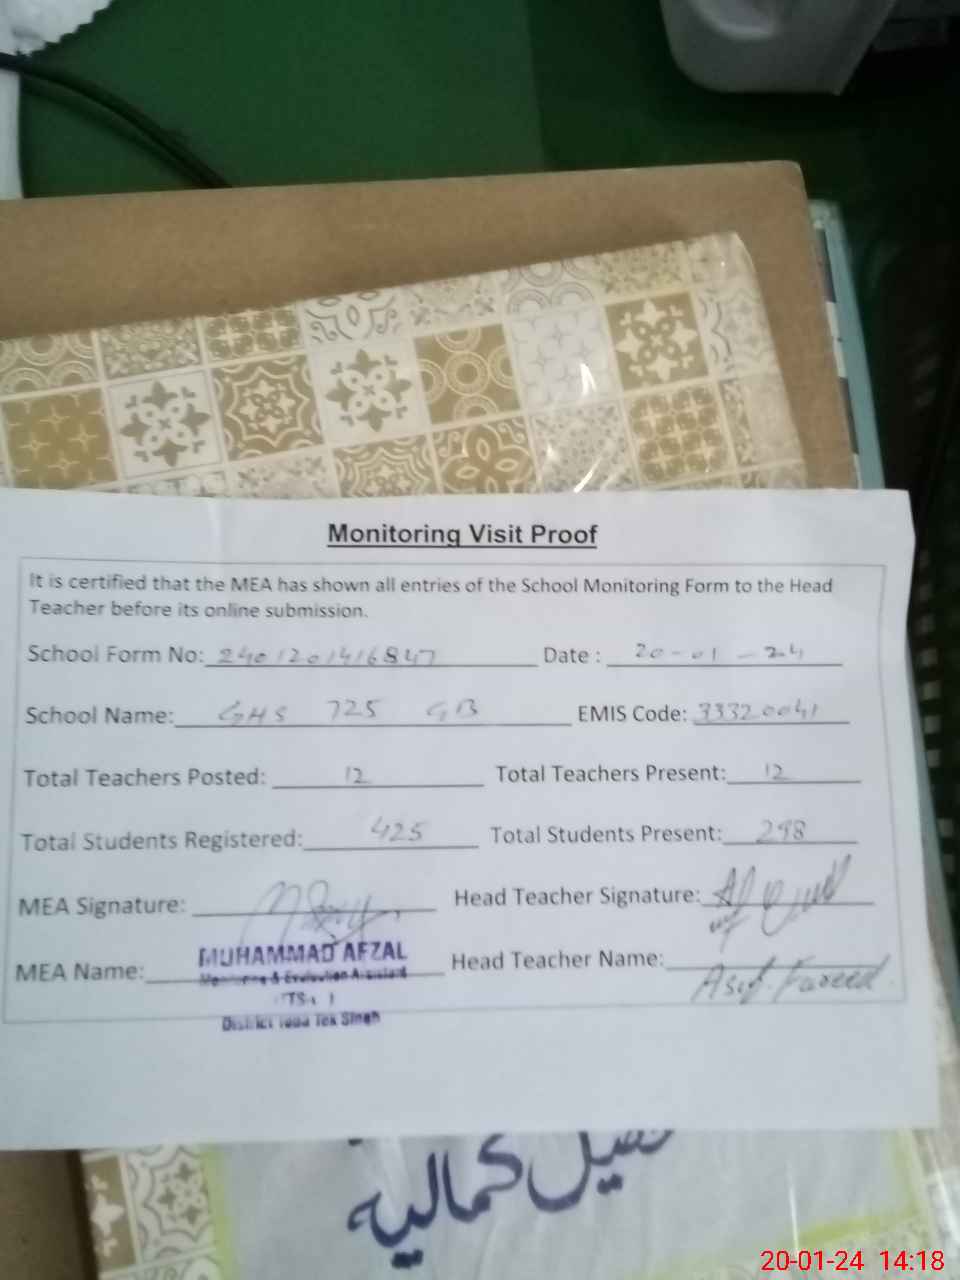 Monitoring Visit Proof
It is certified that the MEA has shown all entries of the School Monitoring Form to the Head
Teacher before its online submission.
School Form No: 2401201416847 Date : 20-01-24
School Name: GHS 725 GB EMIS Code: 33320041
Total Teachers Posted: 12 Total Teachers Present: 12
Total Students Registered: 425 Total Students Present: 298
MEA Signature: Head Teacher Signature:
MEA Name: MUHAMMAD AFZAL Head Teacher Name: Asif Fareed
Monitoring & Evaluation Assistant
District Toba Tek Singh
کمالیہ
20-01-24 14:18